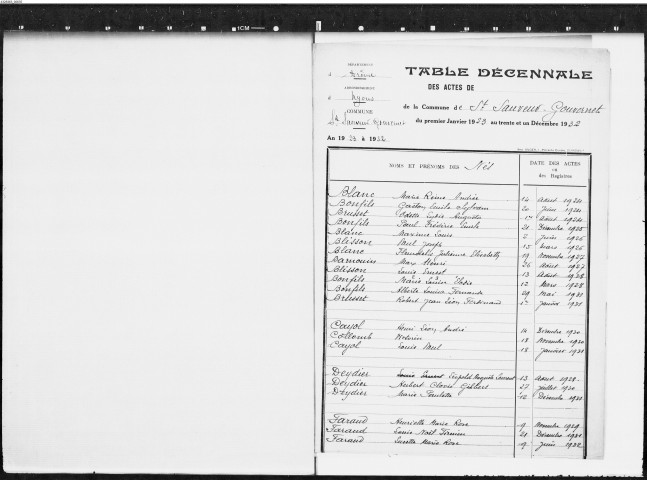 1CM
DÉPARTEMENT
d Drôme
ARRONDISSEMENT
d Nyons
COMMUNE
An 1923 à 1932
TABLE DÉCENNALE
DES ACTES DE
de la Commune de St Sauveur-Gouvernet
du premier Janvier 1923 au trente et un Décembre 1932
NOMS ET PRÉNOMS DES Nés
DATE DES ACTES
ou
des Registres
Blanc Marie Reine Andrée 14 Août 1924
Bonfils Gaëton Emile Sylvain 20 Juin 1924
Brusset Odette Augusta Août 1924
Bonfils Paul Frédéric Emile 21 Décembre 1925
Blanc Maxime Louis 2 Juin 1926
Blisson Paul Joseph 15 Mars 1926
Blanc Julienne 19 Novembre 1927
Max Henri 26 Août 1927
Blisson Louis Ernest 13 Août 1928
Bonfils Marie Louise Elodie 12 Mars 1928
Bonfils Alberte Louise Fernande 29 Mai 1931
Brusset Robert Jean Léon Ferdinand Janvier 1931
Cayol Henri Léon André 14 Décembre 1930
Collomb 18 Novembre 1930
Cayol Louis Paul 18 Janvier 1931
Deydier Léopold Auguste Laurent 13 Août 1928
Deydier Herbert Clovis Gilbert 27 Juillet 1930
Deydier Marie Paulette 12 Décembre 1930
Faraud Henriette Marie Rose 9 Novembre 1929
Faraud Louis Noël Firmin 21 Décembre 1931
Faraud Lucette Marie Rose 9 Juin 1932